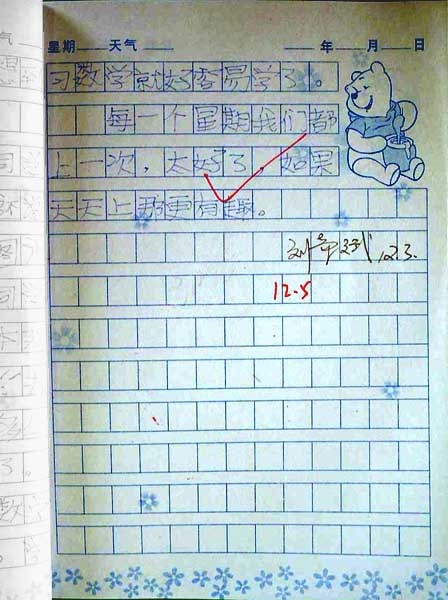 星期 天气 年 月 日
习数学就好容易学了。
每一个星期我们都
上一次，太好了，如果
天天上那更有趣。
12.3.
12.5